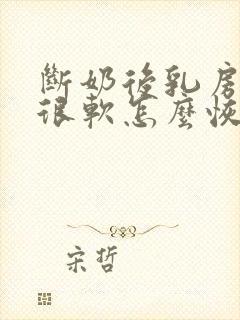 斷奶後乳房
很軟怎麼恢
宋哲